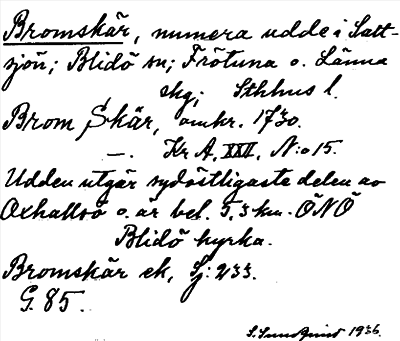 Bromskär, numera udde i Salt-
sjön; Blidö sn; Frötuna o. Länna
skg; Sthlms l.
Brom Skär, omkr. 1730.
—. Kr A, XXVI, N:o 15.
Udden utgår sydöstligaste delen av
Oxhalsö o. är bel. 5,3 km. ÖNÖ
Blidö kyrka.
Bromskär ek, Sj: 233.
G. 85.
S. Sundquist 1936.